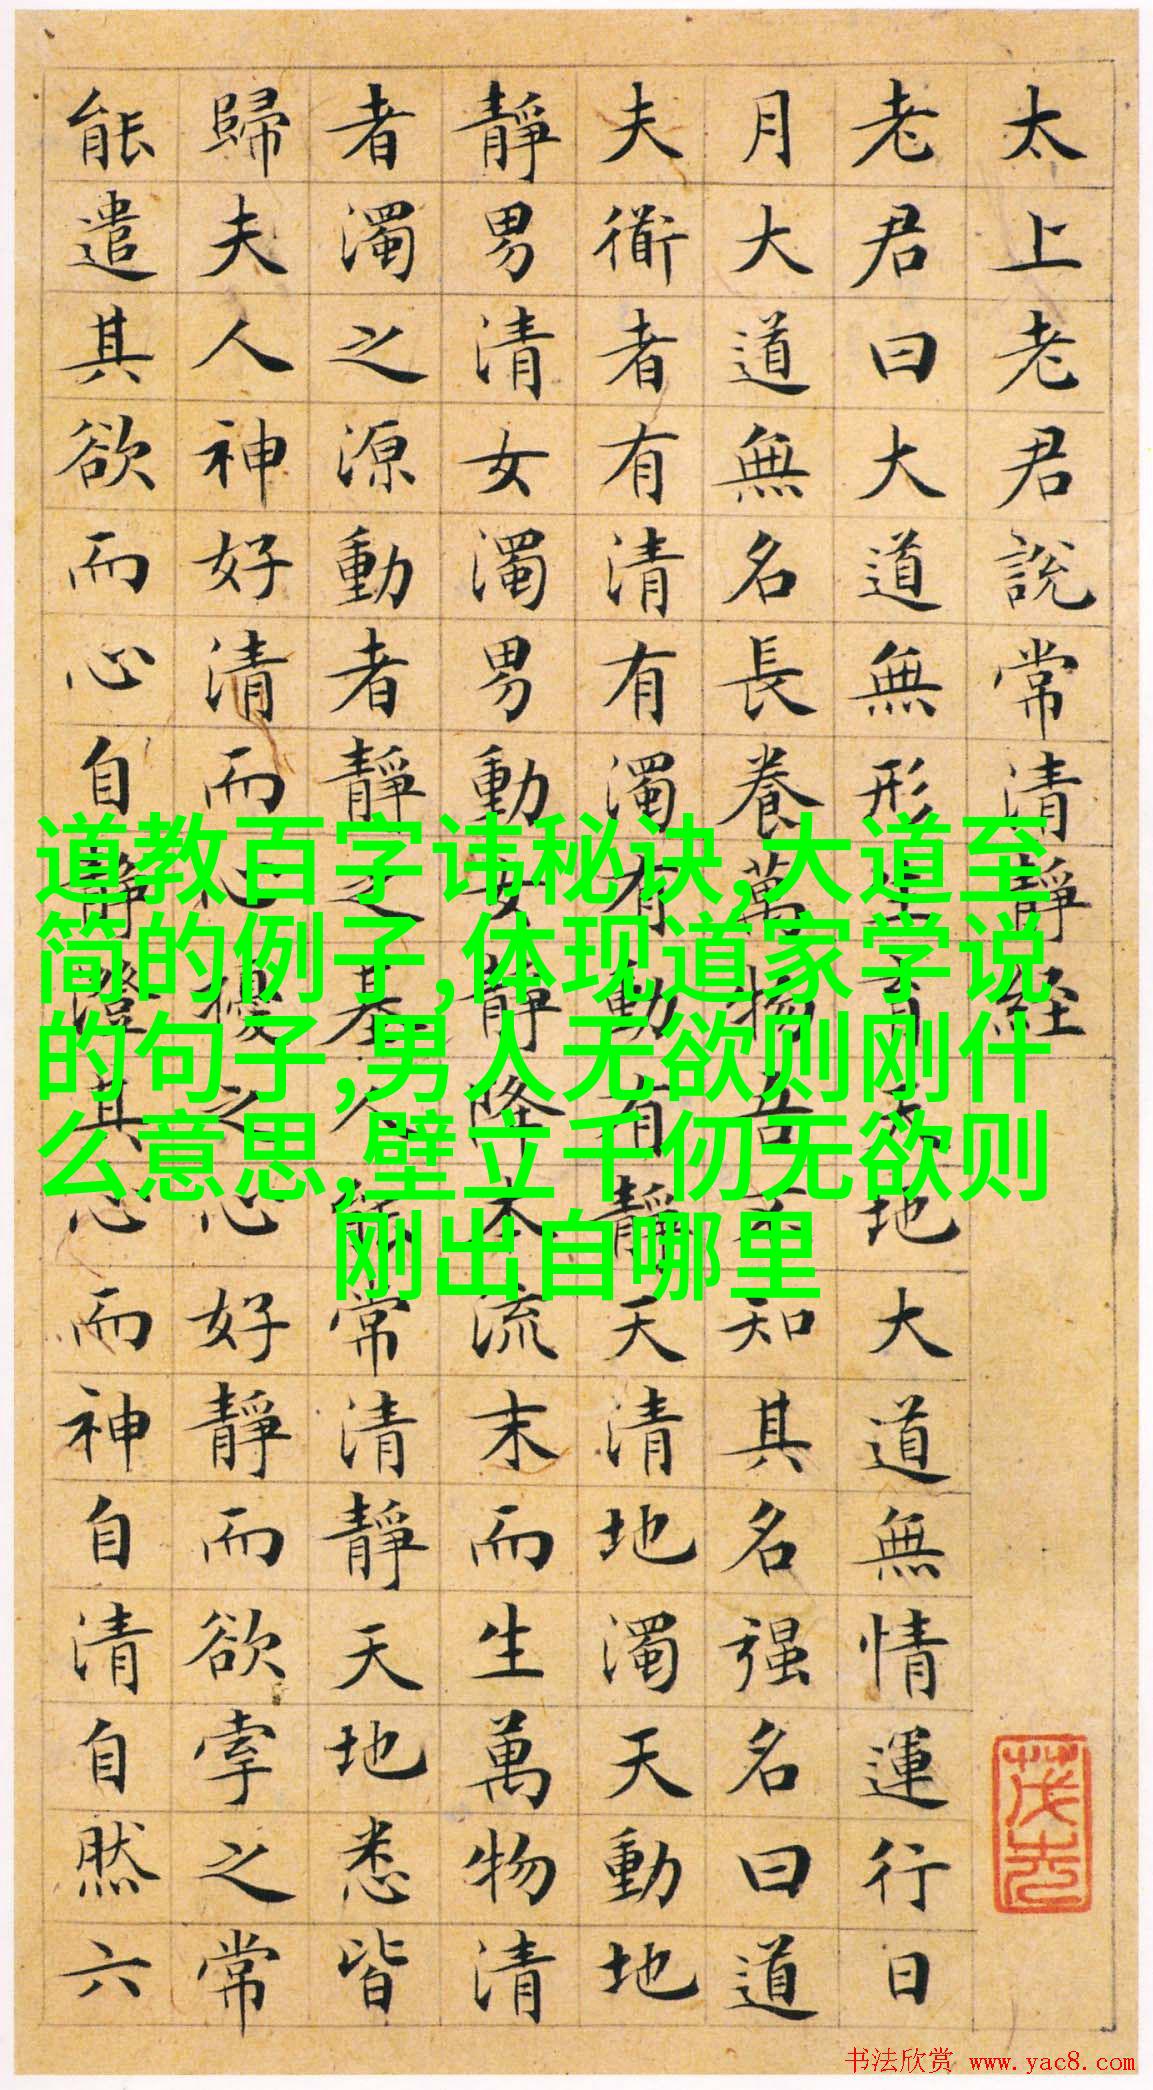 太上老君說常清靜経
老君曰大道無形生育天地大道無情運行日
月大道無名長養萬物吾不知其名强名曰道
夫衜者有清有濁有動有靜天清地濁天動地
靜男清女濁男動女靜降本流末而生萬物清
者濁之源動者靜之基人能常清靜天地悉皆
歸夫人神好清而心擾之心好靜而欲牽之常
能遣其欲而心自靜澄其心而神自清自然六
道教百字讳秘诀,大道至
简的例子,体现道家学说
的句子,男人无欲则刚什
么意思,壁立千仞无欲则
刚出自哪里
书法欣赏 www.yac8.com